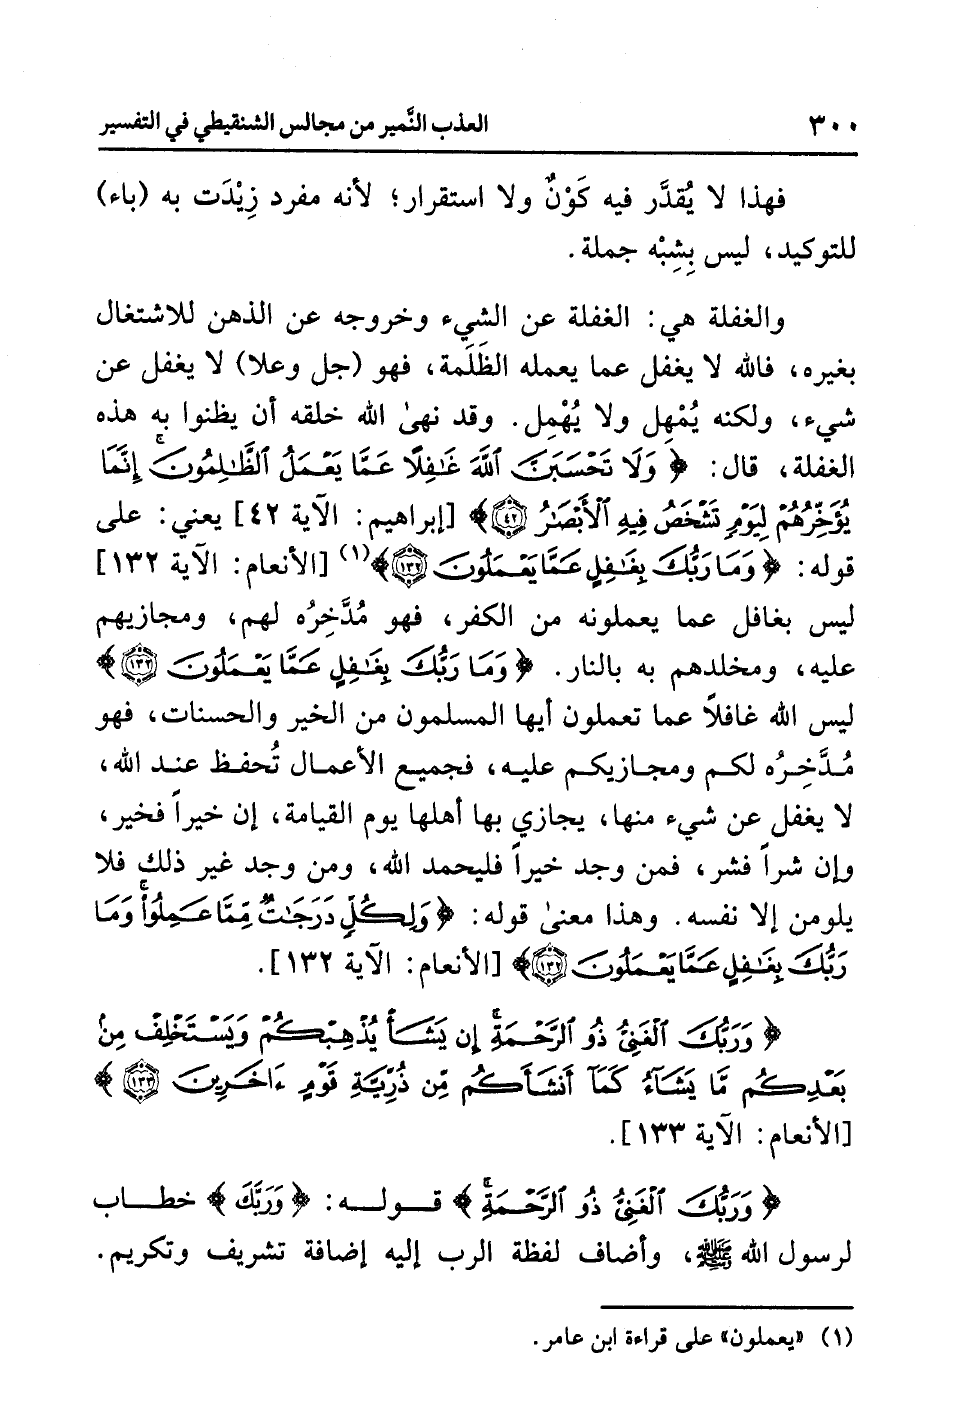 ٣٠٠ العذب النَّمير من مجالس الشنقيطي في التفسير
فهذا لا يُقدَّر فيه كَوْنٌ ولا استقرار؛ لأنه مفرد زِيْدَت به (باء)
للتوكيد، ليس بِشِبْه جملة.
والغفلة هي: الغفلة عن الشيء وخروجه عن الذهن للاشتغال
بغيره، فالله لا يغفل عما يعمله الظَلَمة، فهو (جل وعلا) لا يغفل عن
شيء، ولكنه يُمْهِل ولا يُهْمِل. وقد نهىٰ الله خلقه أن يظنوا به هذه
الغفلة، قال: ﴿ وَلَا تَحْسَبَنَّ ٱللَّهَ غَٰفِلًا عَمَّا يَعْمَلُ ٱلظَّٰلِمُونَ ۚ إِنَّمَا
يُؤَخِّرُهُمْ لِيَوْمٍ تَشْخَصُ فِيهِ ٱلْأَبْصَٰرُ ﴿٤٢﴾﴾ [إبراهيم: الآية ٤٢] يعني: على
قوله: ﴿ وَمَا رَبُّكَ بِغَٰفِلٍ عَمَّا يَعْمَلُونَ ﴿١٣٢﴾﴾(١) [الأنعام: الآية ١٣٢]
ليس بغافل عما يعملونه من الكفر، فهو مُدَّخِرُه لهم، ومجازيهم
عليه، ومخلدهم به بالنار. ﴿ وَمَا رَبُّكَ بِغَٰفِلٍ عَمَّا يَعْمَلُونَ ﴿١٣٢﴾﴾
ليس الله غافلاً عما تعملون أيها المسلمون من الخير والحسنات، فهو
مُدَّخِرُه لكم ومجازيكم عليه، فجميع الأعمال تُحفظ عند الله،
لا يغفل عن شيء منها، يجازي بها أهلها يوم القيامة، إن خيراً فخير،
وإن شراً فشر، فمن وجد خيراً فليحمد الله، ومن وجد غير ذلك فلا
يلومن إلا نفسه. وهذا معنىٰ قوله: ﴿ وَلِكُلٍّ دَرَجَٰتٌ مِّمَّا عَمِلُواْ ۚ وَمَا
رَبُّكَ بِغَٰفِلٍ عَمَّا يَعْمَلُونَ ﴿١٣٢﴾﴾ [الأنعام: الآية ١٣٢].
﴿ وَرَبُّكَ ٱلْغَنِىُّ ذُو ٱلرَّحْمَةِ ۚ إِن يَشَأْ يُذْهِبْكُمْ وَيَسْتَخْلِفْ مِنۢ
بَعْدِكُم مَّا يَشَآءُ كَمَآ أَنشَأَكُم مِّن ذُرِّيَّةِ قَوْمٍ ءَاخَرِينَ ﴿١٣٣﴾﴾
[الأنعام: الآية ١٣٣].
﴿ وَرَبُّكَ ٱلْغَنِىُّ ذُو ٱلرَّحْمَةِ ۚ ﴾ قوله: ﴿ وَرَبُّكَ ﴾ خطاب
لرسول الله ﷺ، وأضاف لفظة الرب إليه إضافة تشريف وتكريم.
(١) «يعملون» على قراءة ابن عامر.